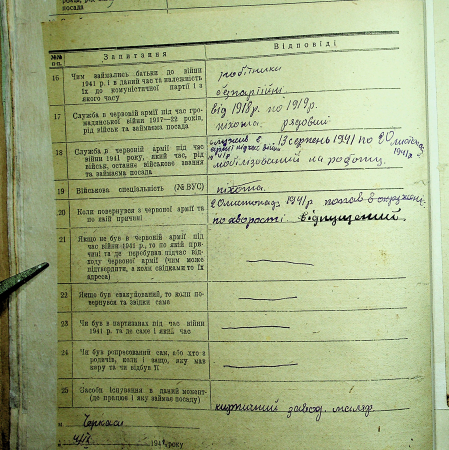 посада
№№ п.п.
Запитання
Відповіді
15
Чим займались батьки до війни
1941 р. і в даний час та належність
їх до комуністичної партії і з
якого часу
робітники
б/партійні
17
Служба в червоній армії під час гро-
мадянської війни 1917—22 років,
рід військ та займаєма посада
від 1918 р. по 1919 р.
піхота. рядовий
18
Служба в червоній армії під час
війни 1941 року, який час, рід
військ, останнє військове звання
та займаєма посада
служив в 13 серпень 1941 по 20 листопад
армії 1941 р.
мобілізований на роботу.
19
Військова спеціальність (№ ВУС)
піхота.
20
Коли повернувся з червоної армії та
по якій причині
20 листопада 1941 р попав в окружен.
по хворості відпущений.
21
Якщо не був в червоній армії під
час війни 1941 р., то по якій при-
чині та де перебував підчас від-
ходу червоної армії (чим може
підтвердити, а коли свідками то їх
адреса)
22
Якщо був евакуйований, то коли по-
вернувся та звідки саме
23
Чи був в партизанах під час війни
1941 р. та де саме і який час
24
Чи був репресований сам, або хто з
родичів, коли і защо, яку мав
кару та чи відбув її
25
Засоби існування в даний момент-
(де працює і яку займає посаду)
завод. маляр.
м. Черкаси
194 року